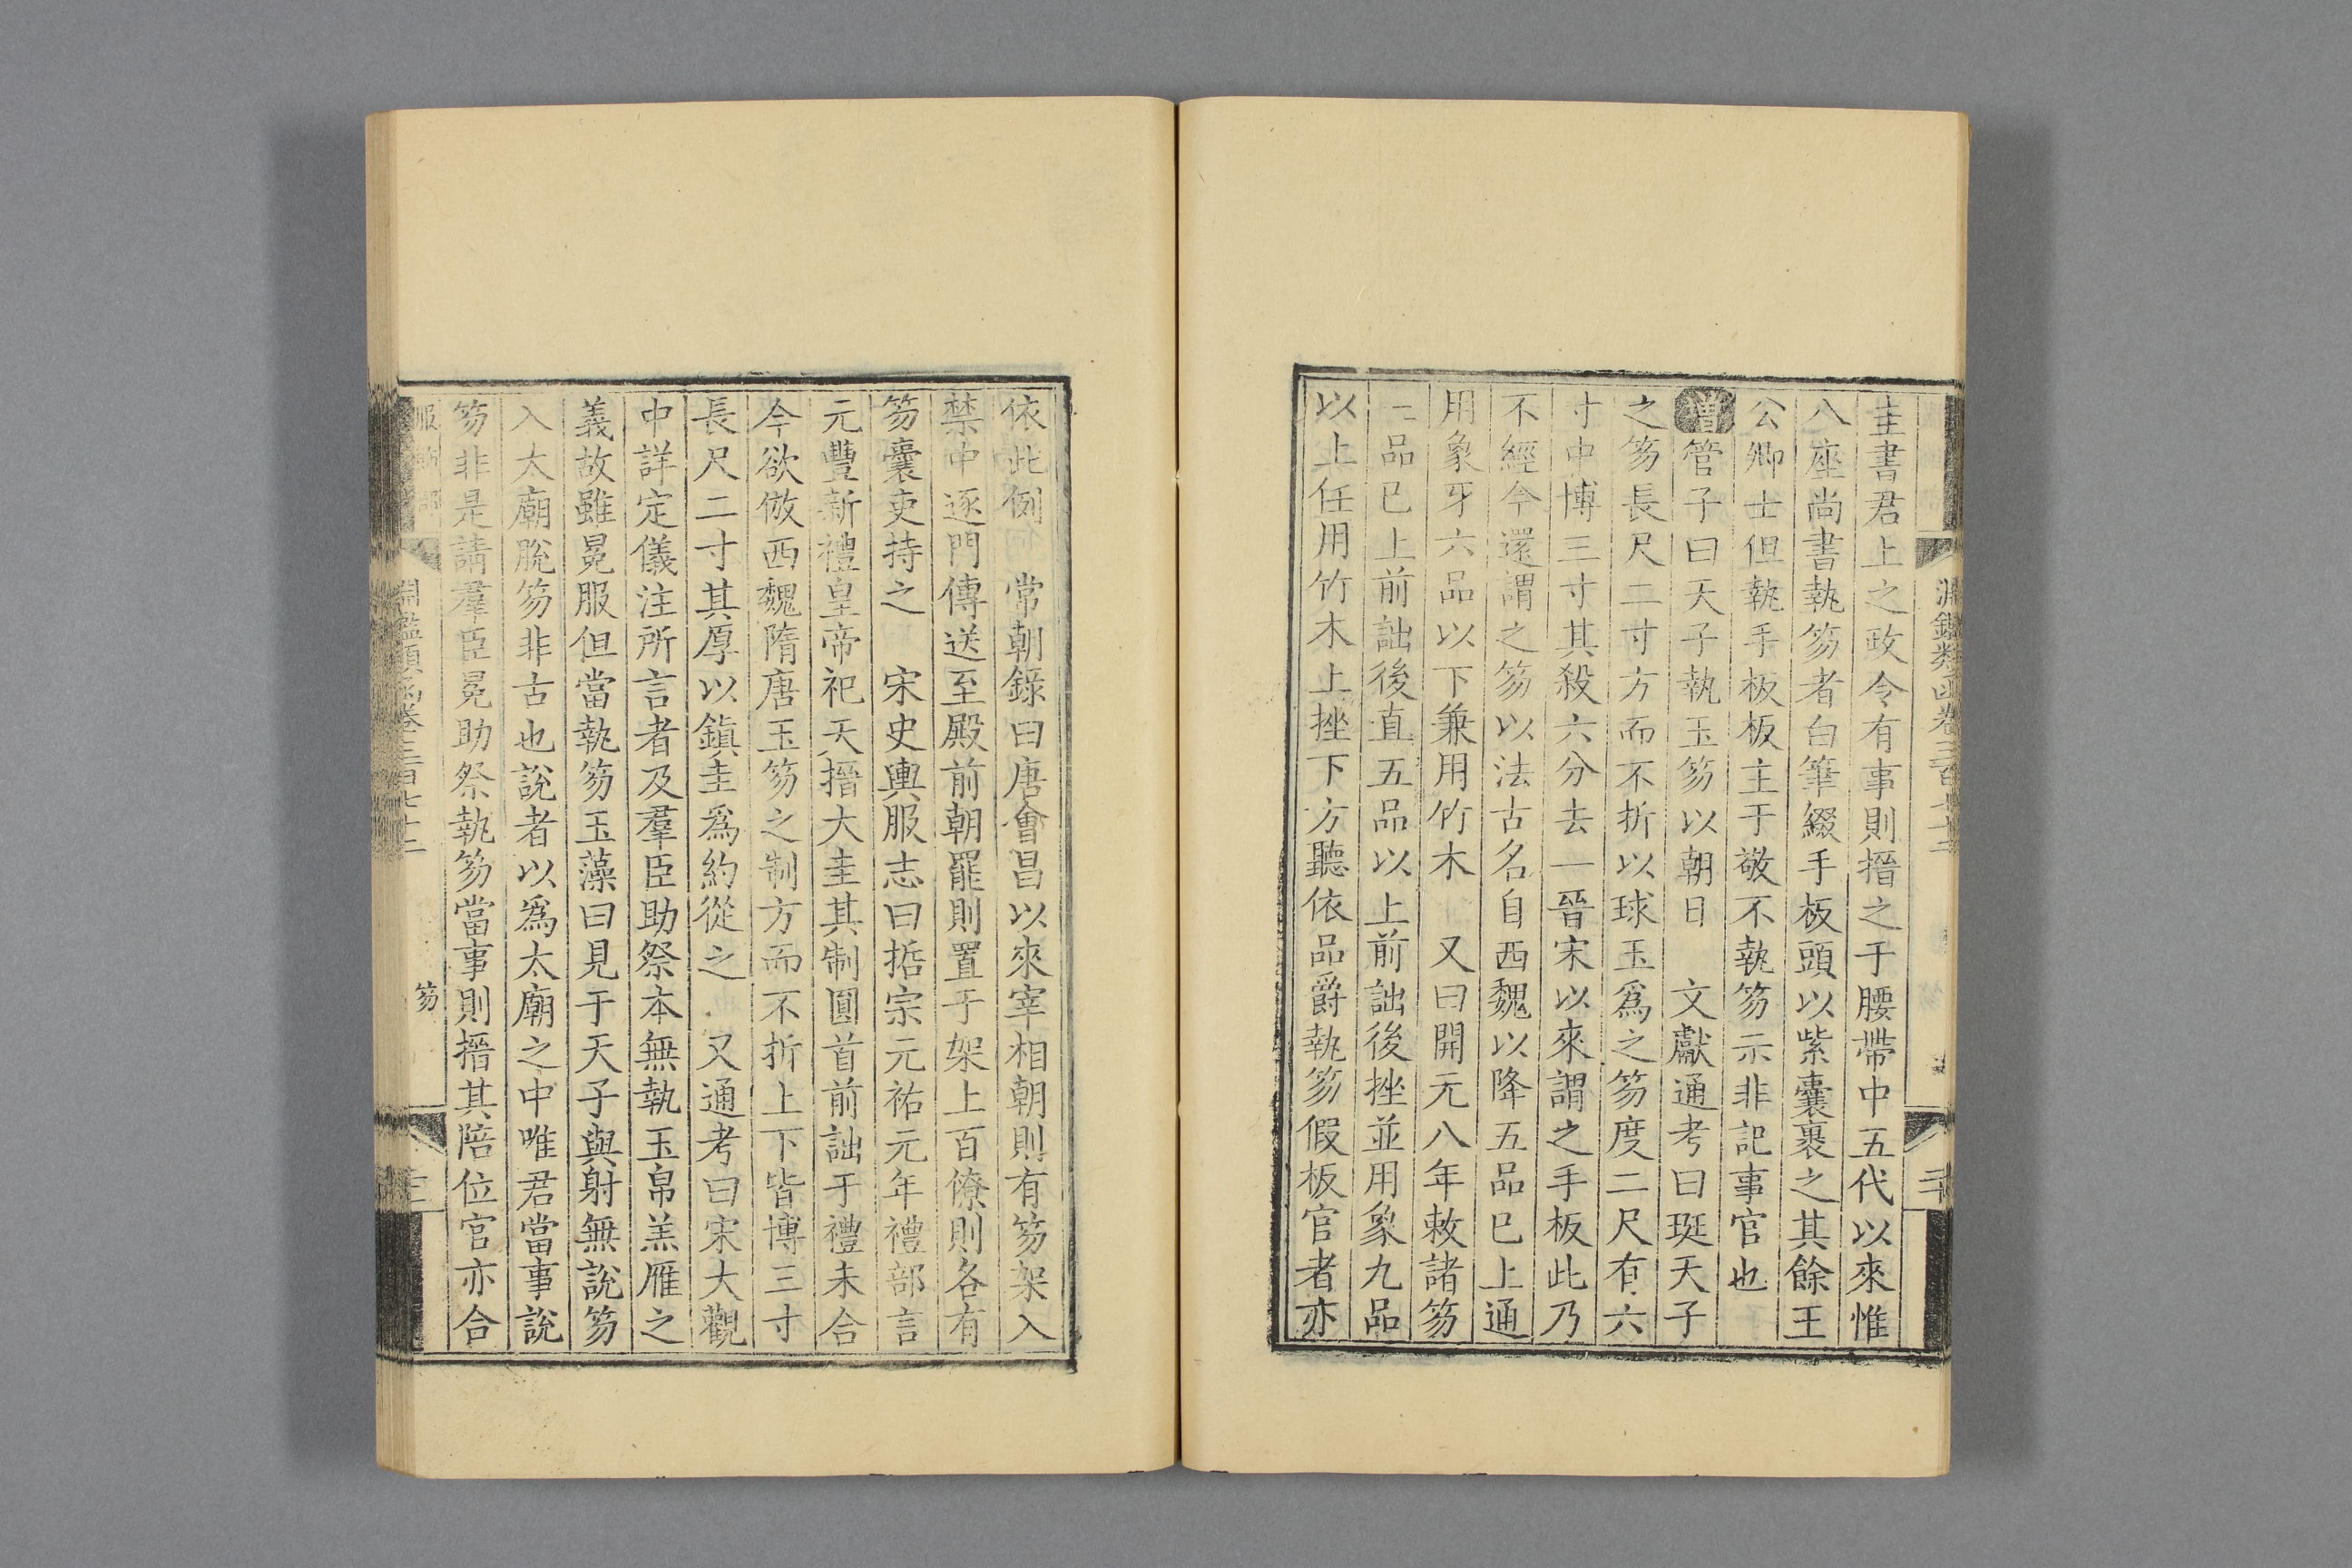 圭書君上之政令有事則搢之于腰帶中五代以來惟
八座尚書執笏者白筆綴手板頭以紫囊裹之其餘王
公卿士但執手板板主于敬不執笏示非記事官也
增管子曰天子執玉笏以朝日　文獻通考曰珽天子
之笏長尺二寸方而不折以球玉爲之笏度二尺有六
寸中博三寸其殺六分去一晉宋以來謂之手板此乃
不經今還謂之笏以法古名自西魏以降五品已上通
用象牙六品以下兼用竹木　又曰開元八年敕諸笏
三品已上前詘後直五品以上前詘後挫並用象九品
以上任用竹木上挫下方聽依品爵執笏假板官者亦
依此例　常朝錄曰唐會昌以來宰相朝則有笏架入
禁中逐門傳送至殿前朝罷則置于架上百僚則各有
笏囊吏持之　宋史輿服志曰哲宗元祐元年禮部言
元豐新禮皇帝祀天搢大圭其制圓首前詘于禮未合
今欲倣西魏隋唐玉笏之制方而不折上下皆博三寸
長尺二寸其厚以鎮圭爲約從之　又通考曰宋大觀
中詳定儀注所言者及羣臣助祭本無執玉帛羔雁之
義故雖冕服但當執笏玉藻曰見于天子與射無說笏
入太廟脫笏非古也說者以爲太廟之中唯君當事說
笏非是請羣臣冕助祭執笏當事則搢其陪位官亦合
淵鑑類函卷三百七十二
服飾部
笏